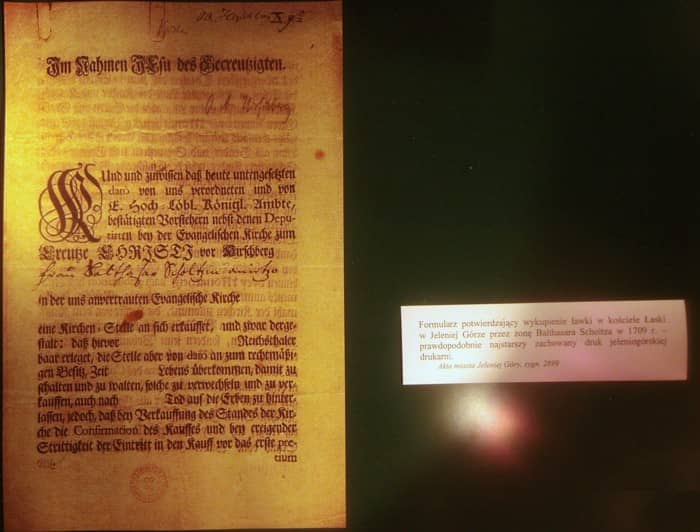 Im Nahmen JEsu des Gecreutzigten.
KUnd und zuwissen daß heute untengesetzten
dato von uns verordneten und von
E. Hoch-Löbl. Königl. Ambte,
bestättigten Vorstehern nebst denen Depu-
tirten bey der Evangelischen Kirche zum
Creutze CHRISTI vor Hirschberg
in der uns anvertrauten Evangelische Kirche
eine Kirchen-Stelle an sich erkauffet, und zwar derge-
stalt: daß hievor Reichsthaler
baar erleget, die Stelle aber von dato an zum rechtmäßi-
gen Besitz, Zeit Lebens überkommen, damit zu
schalten und zu walten, solche zu verwechseln und zu ver-
kauffen, auch nach Tod auf die Erben zu hinter-
lassen, jedoch, daß bey Verkauffung des Standes der Kir-
che die Confirmation des Kauffes und bey ereigender
Strittigkeit der Eintritt in den Kauff vor das erste pre-
tium
Formularz potwierdzający wykupienie ławki w kościele Łaski
w Jeleniej Górze przez żonę Balthasara Scholtza w 1709 r. –
prawdopodobnie najstarszy zachowany druk jeleniogórskiej
drukarni.
Akta miasta Jeleniej Góry, sygn. 2899